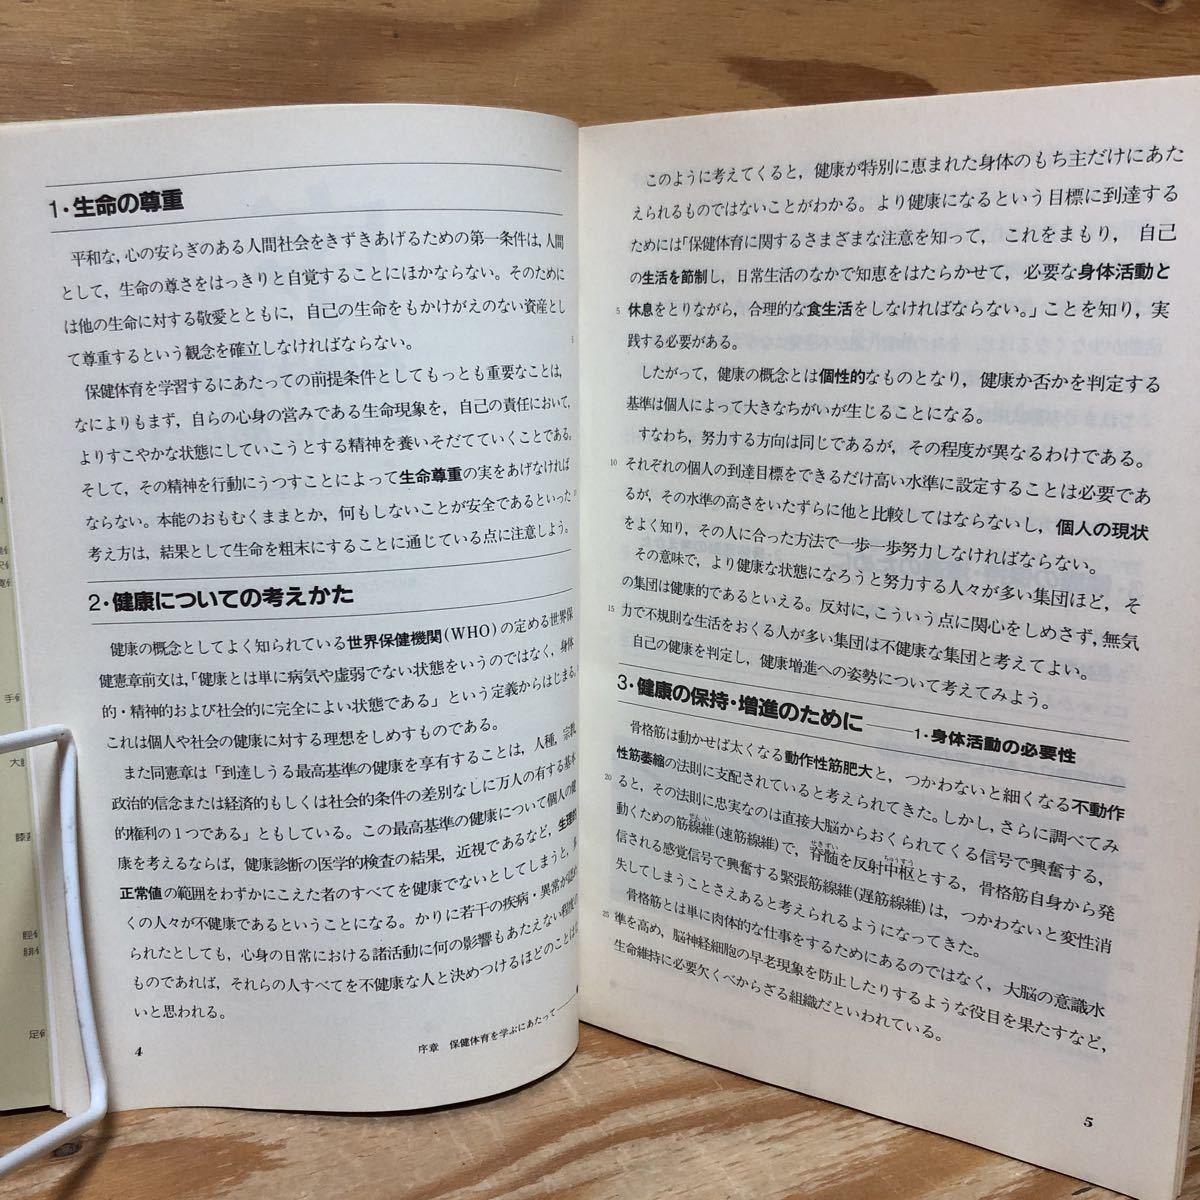 1・生命の尊重
平和な，心の安らぎのある人間社会をきずきあげるための第一条件は，人間
として，生命の尊さをはっきりと自覚することにほかならない。そのために
は他の生命に対する敬愛とともに，自己の生命をもかけがえのない資産とし
て尊重するという観念を確立しなければならない。
5
保健体育を学習するにあたっての前提条件としてもっとも重要なことは，
なによりもまず，自らの心身の営みである生命現象を，自己の責任において，
よりすこやかな状態にしていこうとする精神を養いそだてていくことである。
そして，その精神を行動にうつすことによって生命尊重の実をあげなければ
ならない。本能のおもむくままとか，何もしないことが安全であるといった
考え方は，結果として生命を粗末にすることに通じている点に注意しよう。
2・健康についての考えかた
健康の概念としてよく知られている世界保健機関(WHO)の定める世界保
健憲章前文は，「健康とは単に病気や虚弱でない状態をいうのではなく，身体
的・精神的および社会的に完全によい状態である」という定義からはじまる。
これは個人や社会の健康に対する理想をしめすものである。
また同憲章は「到達しうる最高基準の健康を享有することは，人種，宗教，
政治的信念または経済的もしくは社会的条件の差別なしに万人の有する基本
的権利の1つである」ともしている。この最高基準の健康について個人の健
康を考えるならば，健康診断の医学的検査の結果，近視であるなど，生理的
正常値の範囲をわずかにこえた者のすべてを健康でないとしてしまうと，多
くの人々が不健康であるということになる。かりに若干の疾病・異常が認め
られたとしても，心身の日常における諸活動に何の影響もあたえない程度の
ものであれば，それらの人すべてを不健康な人と決めつけるほどのことはな
いと思われる。
4
序章 保健体育を学ぶにあたって
このように考えてくると，健康が特別に恵まれた身体のもち主だけにあた
えられるものではないことがわかる。より健康になるという目標に到達する
ためには「保健体育に関するさまざまな注意を知って，これをまもり，自己
の生活を節制し，日常生活のなかで知恵をはたらかせて，必要な身体活動と
5 休息をとりながら，合理的な食生活をしなければならない。」ことを知り，実
践する必要がある。
したがって，健康の概念とは個性的なものとなり，健康か否かを判定する
基準は個人によって大きなちがいが生じることになる。
すなわち，努力する方向は同じであるが，その程度が異なるわけである。
10 それぞれの個人の到達目標をできるだけ高い水準に設定することは必要であ
るが，その水準の高さをいたずらに他と比較してはならないし，個人の現状
をよく知り，その人に合った方法で一歩一歩努力しなければならない。
その意味で，より健康な状態になろうと努力する人々が多い集団ほど，そ
の集団は健康的であるといえる。反対に，こういう点に関心をしめさず，無気
15 力で不規則な生活をおくる人が多い集団は不健康な集団と考えてよい。
自己の健康を判定し，健康増進への姿勢について考えてみよう。
3・健康の保持・増進のために——1・身体活動の必要性
骨格筋は動かせば太くなる動作性筋肥大と，つかわないと細くなる不動作
性筋萎縮の法則に支配されていると考えられてきた。しかし，さらに調べてみ
20 ると，その法則に忠実なのは直接大脳からおくられてくる信号で興奮する，
動くための筋線維(速筋線維)で，脊髄を反射中枢とする，骨格筋自身から発
信される感覚信号で興奮する緊張筋線維(遅筋線維)は，つかわないと変性消
失してしまうことさえあると考えられるようになってきた。
骨格筋とは単に肉体的な仕事をするためにあるのではなく，大脳の意識水
25 準を高め，脳神経細胞の早老現象を防止したりするような役目を果たすなど，
生命維持に必要欠くべからざる組織だといわれている。
5